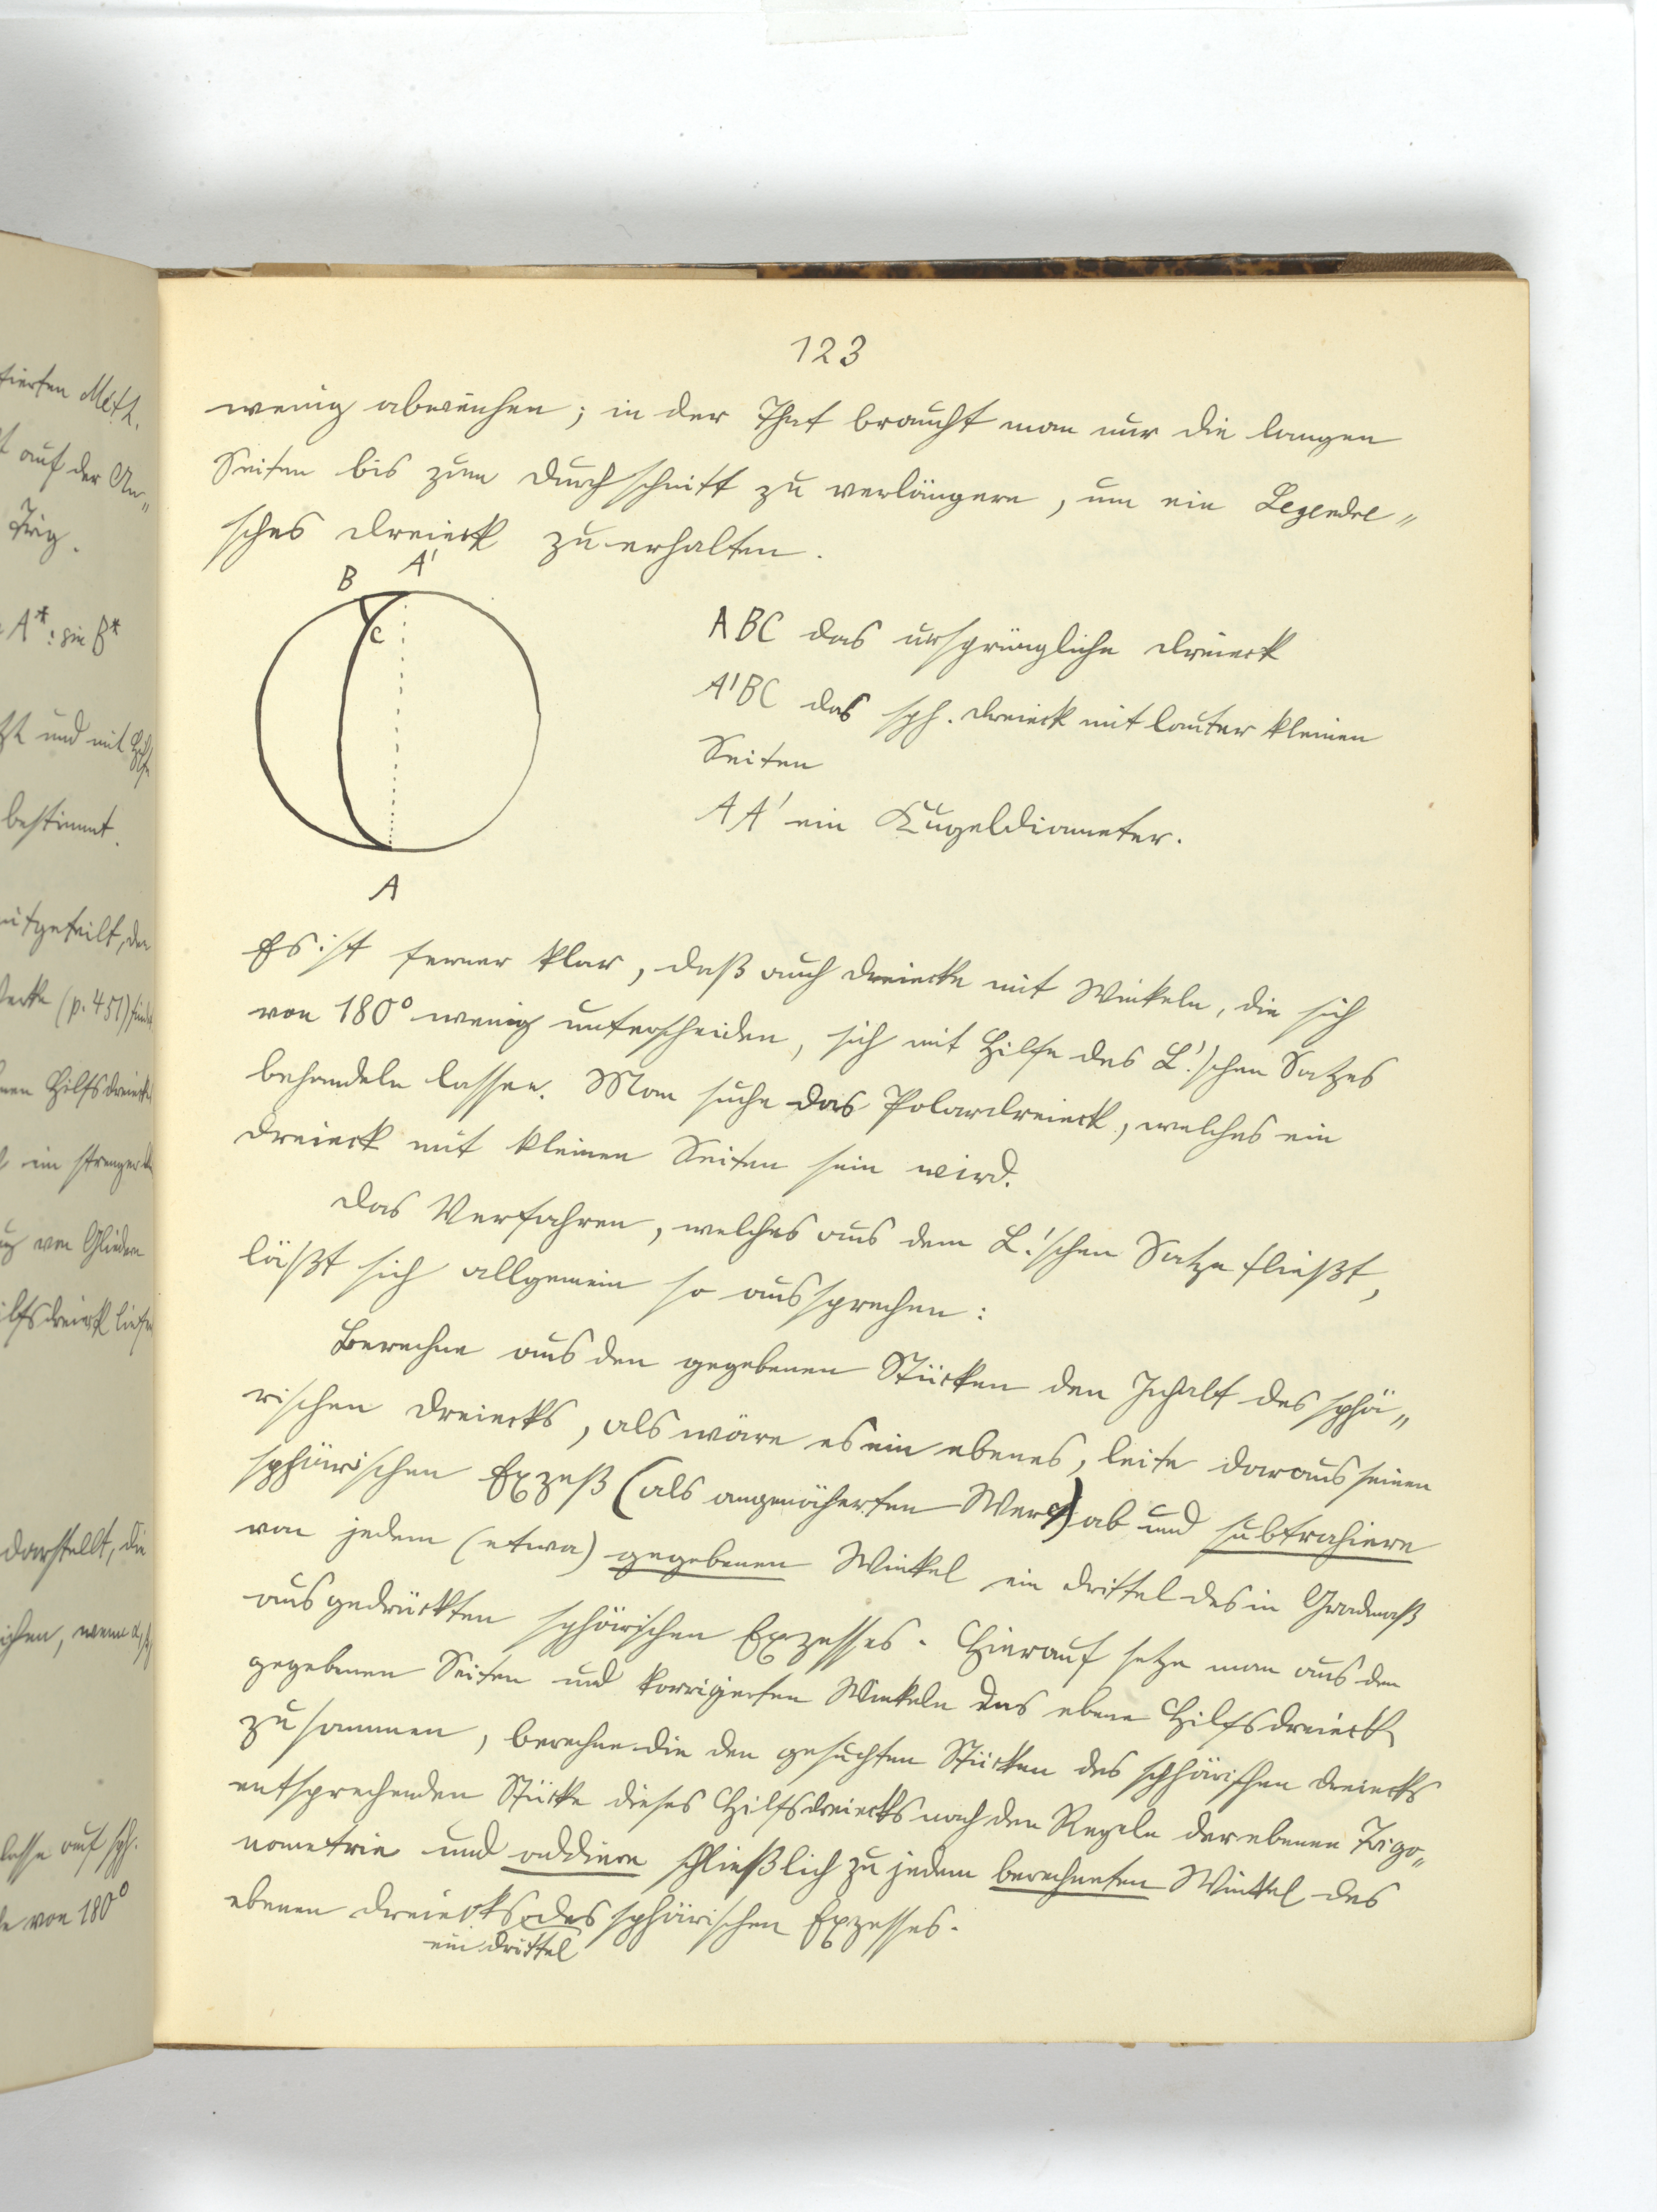 123
wenig abweichen; in der That braucht man nur die langen
Seiten bis zum Durchschnitt zu verlängern, um ein Legendre„
sches Dreieck zu erhalten.
B A'
C
A
ABC das ursprüngliche Dreieck
A'BC das sph. Dreieck mit lauter kleinen
Seiten
AA' ein Kugeldiameter.
Es ist ferner klar, daß auch Dreiecke mit Winkeln, die sich
von 180° wenig unterscheiden, sich mit Hilfe des L.'schen Satzes
behandeln lassen. Man suche das Polardreieck, welches ein
Dreieck mit kleinen Seiten sein wird.
Das Verfahren, welches aus dem L.'schen Satze fließt,
läßt sich allgemein so aussprechen:
Berechne aus den gegebenen Stücken den Inhalt des sphä„
rischen Dreiecks, als wäre es ein ebenes, leite daraus seinen
sphärischen Exzeß (als angenäherten Wert) ab und subtrahiere
von jedem (etwa) gegebenen Winkel ein Drittel des in Gradmaß
ausgedrückten sphärischen Exzesses. Hierauf setze man aus den
gegebenen Seiten und korrigierten Winkeln das ebene Hilfsdreieck
zusammen, berechne die den gesuchten Stücken des sphärischen Dreiecks
entsprechenden Stücke dieses Hilfsdreiecks nach den Regeln der ebenen Trigo„
nometrie und addiere schließlich zu jedem berechneten Winkel des
ebenen Dreiecks des sphärischen Exzesses.
ein Drittel
tierten Meth.
auf der An„
Trig.
A* : sin B*
und mit Hilfe
bestimmt.
mitgeteilt, der
(p. 451)
Hilfsdreieck
ein strenger
von Gliedern
darstellt, die
wenn α,
auf sph.
von 180°